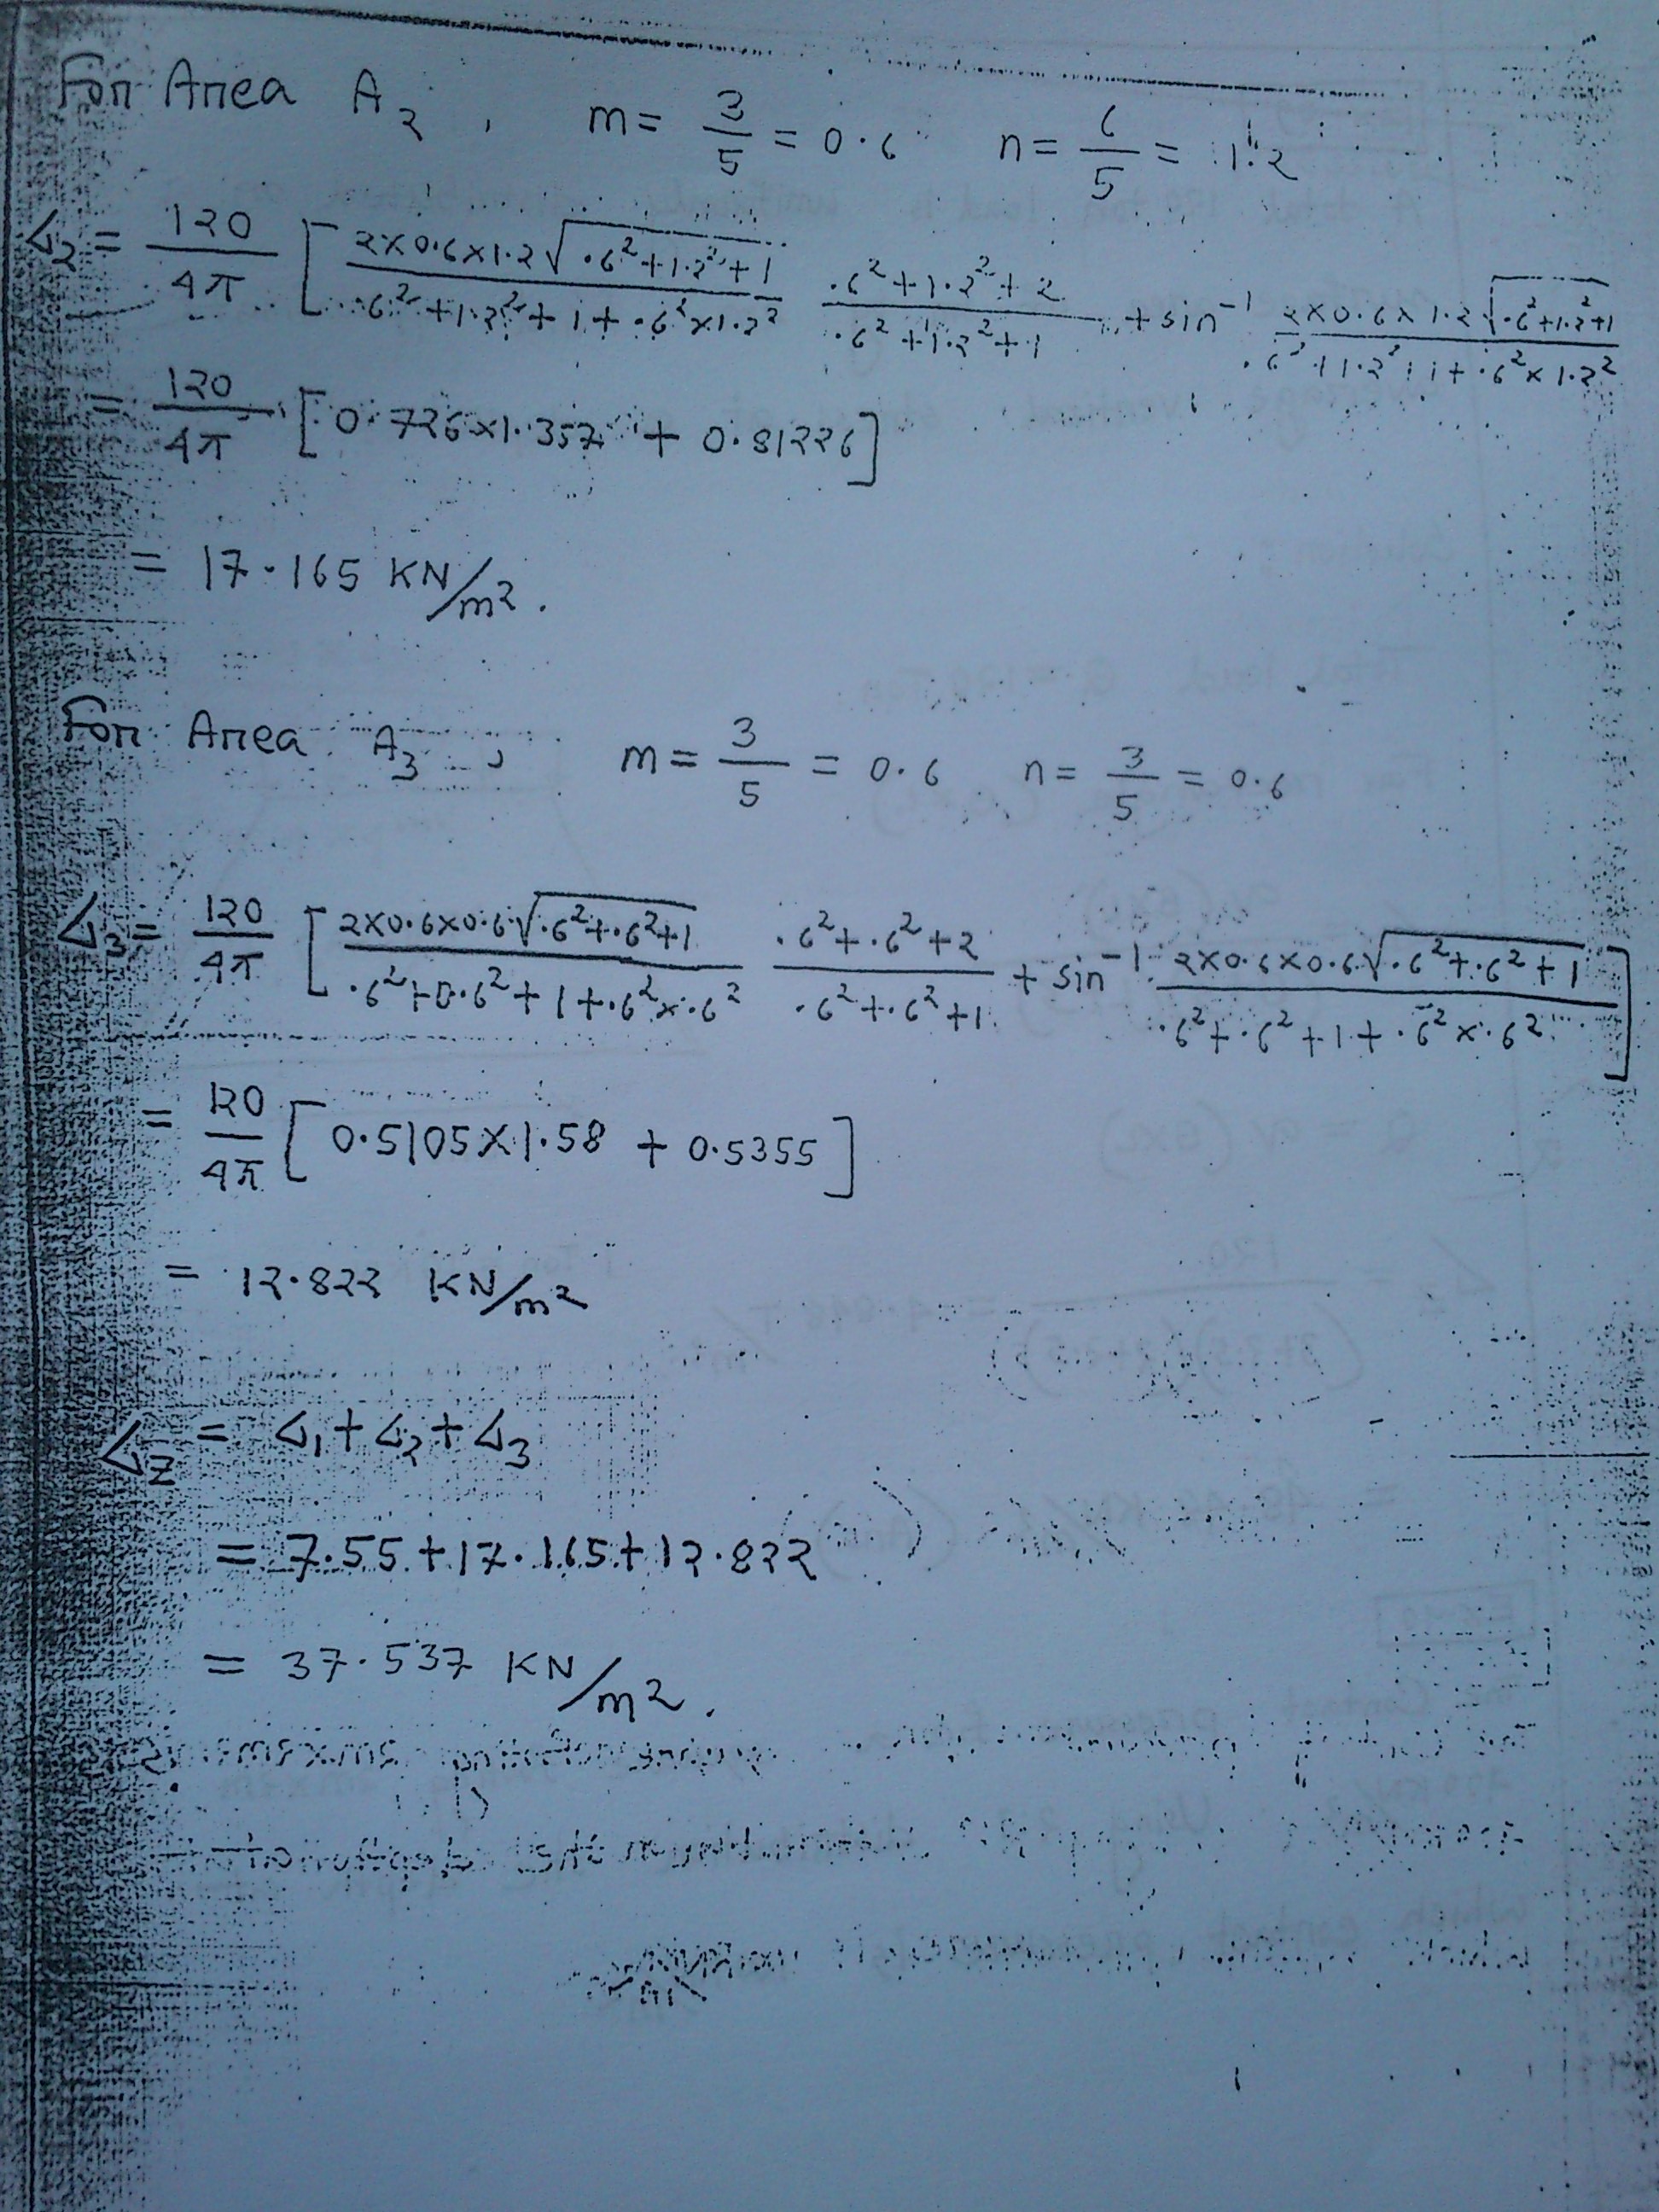 For Area A2 , m = 3/5 = 0.6 n = 6/5 = 1.2
σ2 = 120/4π [ 2×0.6×1.2√(.6²+1.2²+1) / .6²+1.2²+1+.6²×1.2² .6²+1.2²+2 / .6²+1.2²+1 + sin⁻¹ 2×0.6×1.2√(.6²+1.2²+1) / .6²+1.2²+1+.6²×1.2²
= 120/4π [0.726×1.357 + 0.81226]
= 17.165 KN/m².
For Area A3 , m = 3/5 = 0.6 n = 3/5 = 0.6
σ3 = 120/4π [ 2×0.6×0.6√(.6²+.6²+1) / .6²+0.6²+1+.6²×.6² .6²+.6²+2 / .6²+.6²+1 + sin⁻¹ 2×0.6×0.6√(.6²+.6²+1) / .6²+.6²+1+.6²×.6² ]
= 120/4π [ 0.5105×1.58 + 0.5355 ]
= 12.822 KN/m²
σz = σ1+σ2+σ3
= 7.55+17.165+12.822
= 37.537 KN/m².